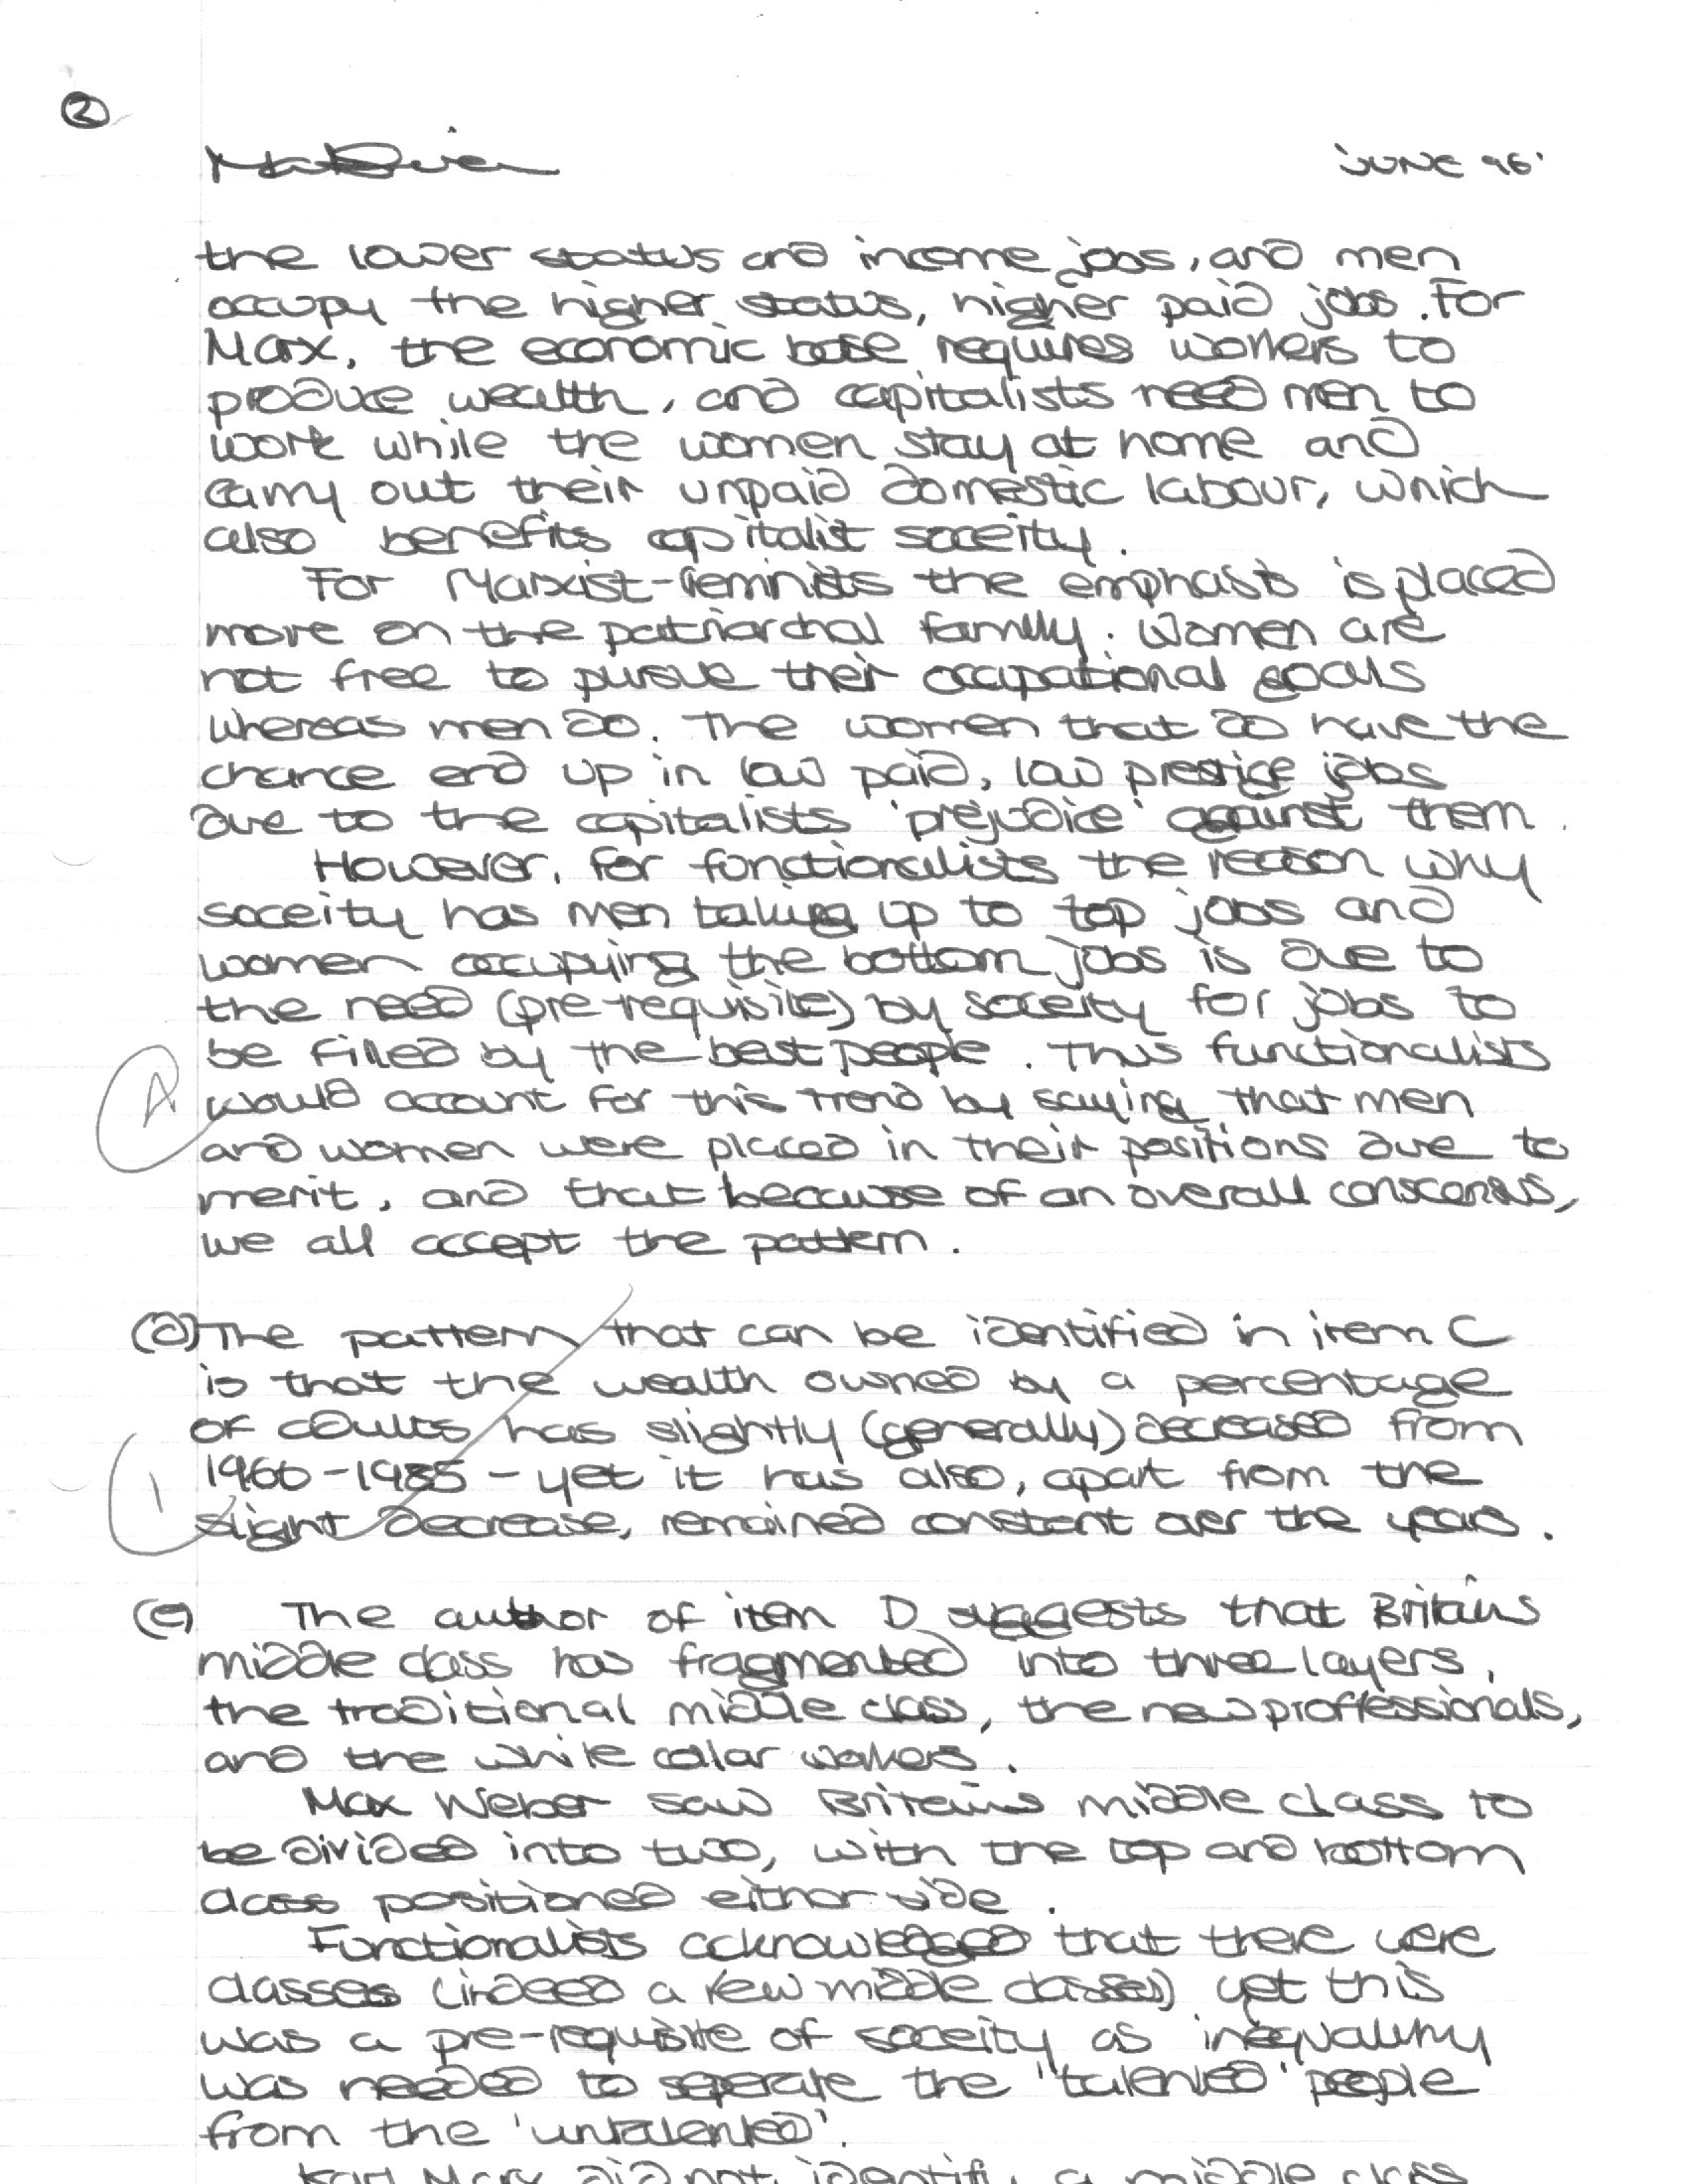 2
JUNE 96'
the lower status and income jobs, and men
occupy the higher status, higher paid jobs. For
Marx, the economic base requires workers to
produce wealth, and capitalists need men to
work while the women stay at home and
carry out their unpaid domestic labour, which
also benefits capitalist soceity.
For Marxist-feminists the emphasis is placed
more on the patriarchal family. Women are
not free to pursue their occupational goals
whereas men do. The women that do have the
chance end up in low paid, low prestige jobs
due to the capitalists 'prejudice' against them.
However, for functionalists the reason why
soceity has men taking up to top jobs and
women occupying the bottom jobs is due to
the need (pre-requisite) by soceity for jobs to
be filled by the best people. This functionalists
A
would account for this trend by saying that men
and women were placed in their positions due to
merit, and that because of an overall conscensus,
we all accept the pattern.
(d) The pattern that can be identified in item C
is that the wealth owned by a percentage
of adults has slightly (generally) decreased from
1966-1985 - yet it has also, apart from the
1
slight decrease, remained constant over the years.
(e) The author of item D suggests that Britains
middle class has fragmented into three layers,
the traditional middle class, the new proffessionals,
and the white collar workers.
Max Weber saw Britains middle class to
be divided into two, with the top and bottom
class positioned either side.
Functionalists acknowledged that there were
classes (indeed a few middle classes) yet this
was a pre-requisite of soceity as inequality
was needed to seperate the 'talented' people
from the 'untalented'.
Karl Marx did not identify a middle class